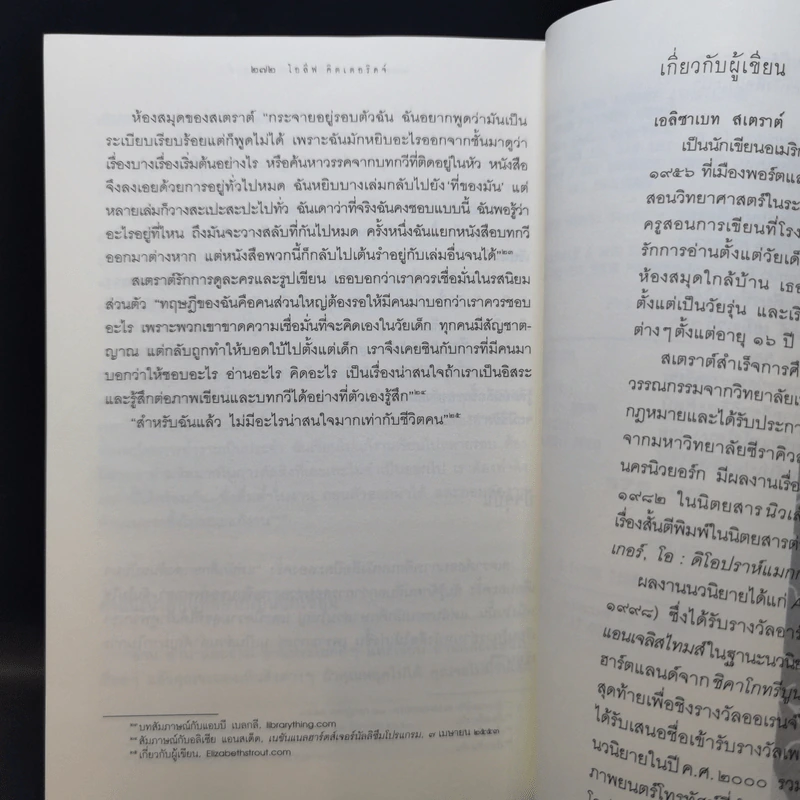 ๒๗๒ โอลีฟ คิตเตอริดจ์
ห้องสมุดของสเตราต์ “กระจายอยู่รอบตัวฉัน ฉันอยากพูดว่ามันเป็น
ระเบียบเรียบร้อยแต่ก็พูดไม่ได้ เพราะฉันมักหยิบอะไรออกจากชั้นมาดูว่า
เรื่องบางเรื่องเริ่มต้นอย่างไร หรือค้นหาวรรคจากบทกวีที่ติดอยู่ในหัว หนังสือ
จึงลงเอยด้วยการอยู่ทั่วไปหมด ฉันหยิบบางเล่มกลับไปยัง ‘ที่ของมัน’ แต่
หลายเล่มก็วางสะเปะสะปะไปทั่ว ฉันเดาว่าที่จริงฉันคงชอบแบบนี้ ฉันพอรู้ว่า
อะไรอยู่ที่ไหน ถึงมันจะวางสลับที่กันไปหมด ครั้งหนึ่งฉันแยกหนังสือบทกวี
ออกมาต่างหาก แต่หนังสือพวกนี้ก็กลับไปเต้นรำอยู่กับเล่มอื่นจนได้”๒๓
สเตราต์รักการดูละครและรูปเขียน เธอบอกว่าเราควรเชื่อมั่นในรสนิยม
ส่วนตัว “ทฤษฎีของฉันคือคนส่วนใหญ่ต้องรอให้มีคนมาบอกว่าเราควรชอบ
อะไร เพราะพวกเขาขาดความเชื่อมั่นที่จะคิดเองในวัยเด็ก ทุกคนมีสัญชาต-
ญาณ แต่กลับถูกทำให้บอดใบ้ไปตั้งแต่เด็ก เราจึงเคยชินกับการที่มีคนมา
บอกว่าให้ชอบอะไร อ่านอะไร คิดอะไร เป็นเรื่องน่าสนใจถ้าเราเป็นอิสระ
และรู้สึกต่อภาพเขียนและบทกวีได้อย่างที่ตัวเองรู้สึก”๒๔
“สำหรับฉันแล้ว ไม่มีอะไรน่าสนใจมากเท่ากับชีวิตคน”๒๕
๒๓ บทสัมภาษณ์กับแอบบี เบลกลี, librarything.com
๒๔ สัมภาษณ์กับอลิเซีย แอนสเต็ด, เนชันแนลฮาร์ตส์เจอร์นัลลิซึมโปรแกรม, ๓ เมษายน ๒๕๕๓
๒๕ เกี่ยวกับผู้เขียน, Elizabethstrout.com
เกี่ยวกับผู้เขียน
เอลิซาเบท สเตราต์
เป็นนักเขียนอเมริก
๑๙๕๖ ที่เมืองพอร์ตแล
สอนวิทยาศาสตร์ในระ
ครูสอนการเขียนที่โรง
รักการอ่านตั้งแต่วัยเด็
ห้องสมุดใกล้บ้าน เธอ
ตั้งแต่เป็นวัยรุ่น และเริ
ต่างๆ ตั้งแต่อายุ ๑๖ ปี
สเตราต์สำเร็จการศึ
วรรณกรรมจากวิทยาลัยเ
กฎหมายและได้รับประกา
จากมหาวิทยาลัยซีราคิวส
นครนิวยอร์ก มีผลงานเรื่อ
๑๙๘๒ ในนิตยสาร นิวเล
เรื่องสั้นตีพิมพ์ในนิตยสารต่
เกอร์, โอ : ดิโอปราห์แมกก
ผลงานนวนิยายได้แก่
๑๙๙๘) ซึ่งได้รับรางวัลอาร์
แอนเจลิสไทมส์ในฐานะนวนิย
ฮาร์ตแลนด์จาก ชิคาโกทรีบูน
สุดท้ายเพื่อชิงรางวัลออเรนจ์
ได้รับเสนอชื่อเข้ารับรางวัลเพ
นวนิยายในปี ค.ศ. ๒๐๐๐ รวม
ภาพยนตร์โทรทัศน์ที่